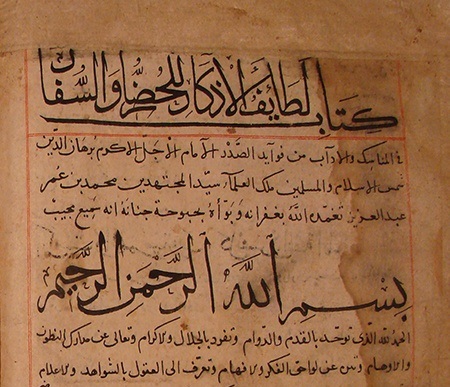 كتاب لطايف الاذكار للحضار والسفار
في المناسك والاداب من فوايد الصدر الامام الاجل الاكرم برهان الدين
شمس الاسلام والمسلمين ملك العلماء سيد المجتهدين محمد بن عمر
عبد العزيز تغمده الله بغفرانه وبوأه بحبوحة جنانه انه سميع مجيب
بسم الله الرحمن الرحيم
الحمد لله الذي توحد بالقدم والدوام وتفرد بالجلال والاكرام وتعالى عن مدارك الظنون
والاوهام عن لواحق الفكر والافهام وتعرف الى العقول بالشواهد والاعلام